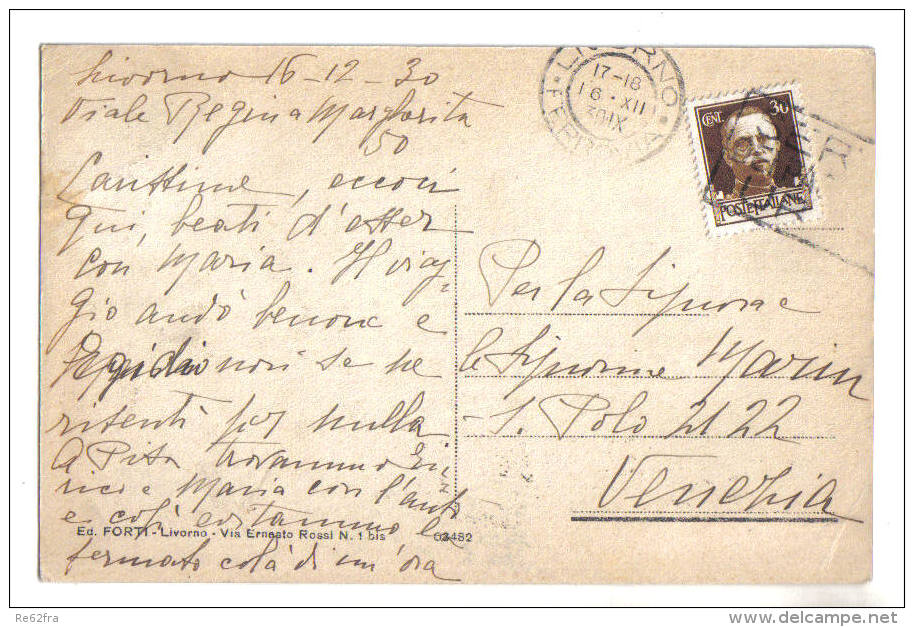 Livorno 16-12-30
Viale Regina Margherita
50
Carissime, eccoci
qui, beati d'esser
con Maria. Il viag-
gio andò benone e
Egidio non se ne
risentì per nulla
A Pisa trovammo En-
rico e Maria con l'auto
e così evitammo la
fermata colà di un'ora
Ed. FORTI - Livorno - Via Ernesto Rossi N. 1 bis
63482
LIVORNO
17-18
16.XII
30 IX
FERROVIA
CENT. 30
POSTE ITALIANE
Per la Signora e
le Signorine Marin
S. Polo 2122
Venezia
Re62fra
www.delcampe.net